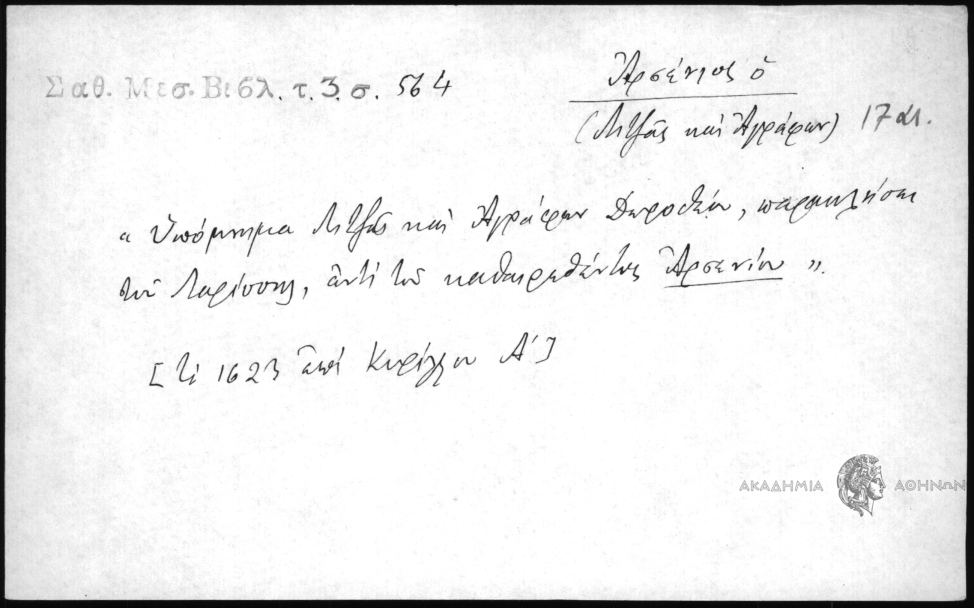 Σαθ. Μεσ. Βιβλ. τ. 3. σ. 564
Ἀρσένιος ὁ
(Λιτζᾶς καὶ Ἀγράφων) 17 αι.
« Ὑπόμνημα Λιτζᾶς καὶ Ἀγράφων Δωροθέου, παρακλήσει
τοῦ Λαρίσσης, ἀντὶ τοῦ καθαιρεθέντος Ἀρσενίου ».
[τῷ 1623 ἐπὶ Κυρίλλου Α΄]
ΑΚΑΔΗΜΙΑ ΑΘΗΝΩΝ